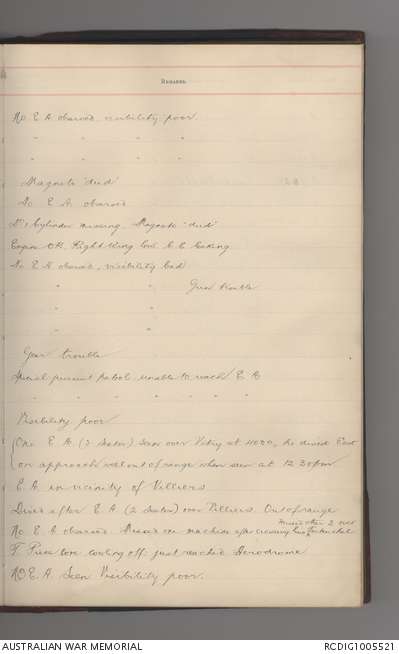 REMARKS.
No E A observed. visibility poor
" " " "
" " " "
Magneto 'dud'
No E A observed
No 1 Cylinder missing. Magneto 'dud'
Engine OK. Right Wing low.
No E A observed, visibility bad
" " Gun trouble
" "
" "
Gun trouble
Special pursuit patrol unable to reach E A
" " " " " " "
Visibility poor
One E. A. (2 Seater) seen over Vitry at 4000, he dived East
on approach well out of range when seen at 12.30pm
E. A. in vicinity of Villiers
Dived after E A (2 Seater) over Villiers Out of range
No E. A. observed. Missed one machine after crossing
T Piece tore cowling off. just reached Aerodrome
NO E. A. Seen Visibility poor.
AUSTRALIAN WAR MEMORIAL
RCDIG1005521